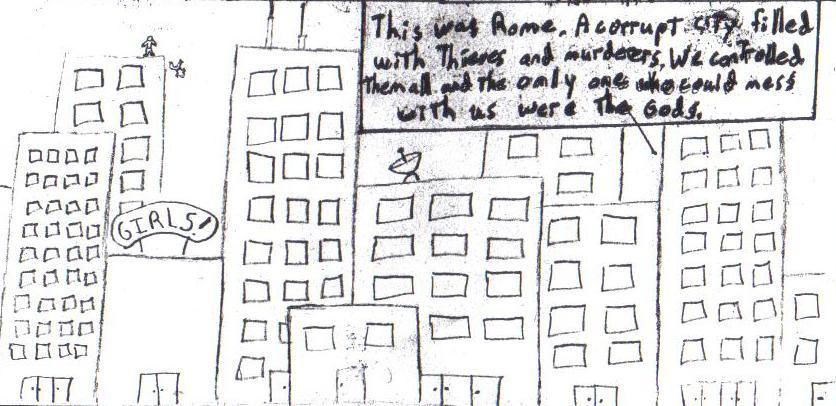 This was Rome. A corrupt city filled
with Thieves and murderers. We controlled
them all and the only ones who could mess
with us were The Gods.
GIRLS!